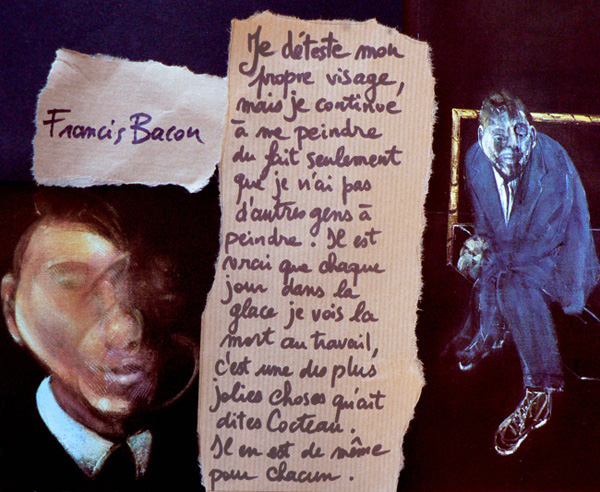 Francis Bacon
Je déteste mon
propre visage,
mais je continue
à me peindre
du fait seulement
que je n'ai pas
d'autres gens à
peindre. Il est
vrai que chaque
jour dans la
glace je vois la
mort au travail,
c'est une des plus
jolies choses qu'ait
dites Cocteau.
Il en est de même
pour chacun.